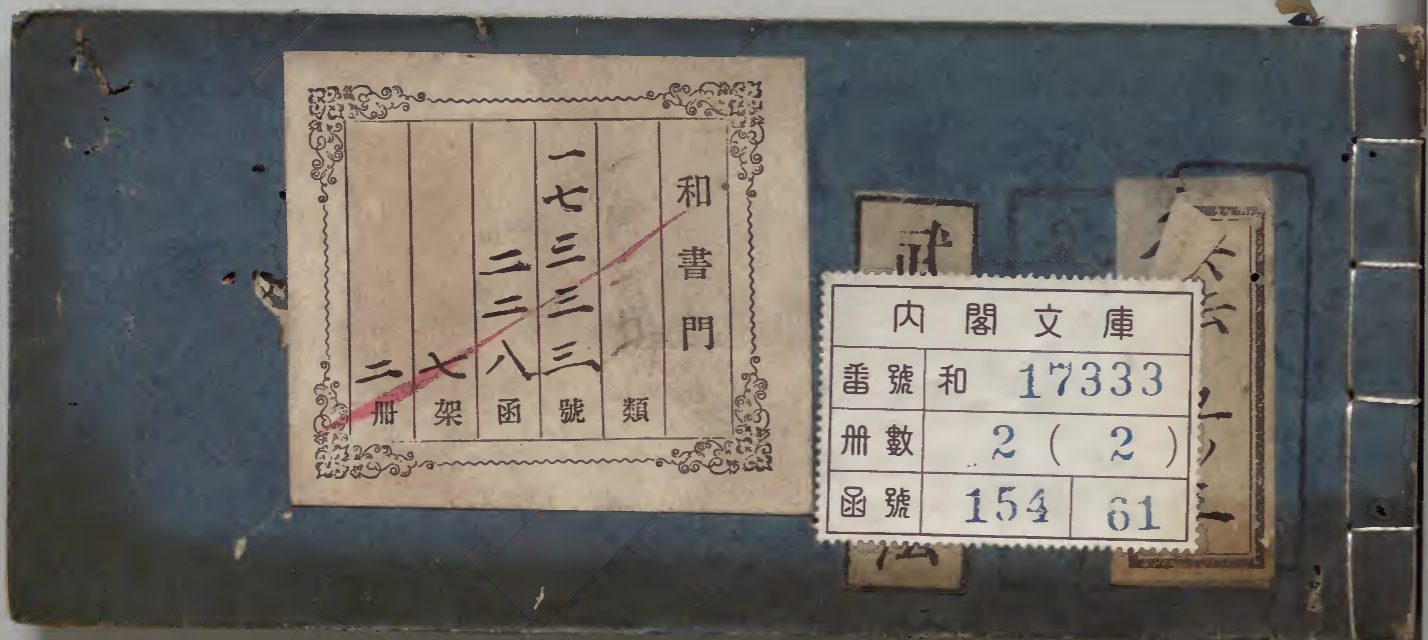 和書門
類
一七三三三號
二二八函
七架
二冊
内閣文庫
番號 和 17333
册數 2 ( 2 )
函號 154 61
武
法